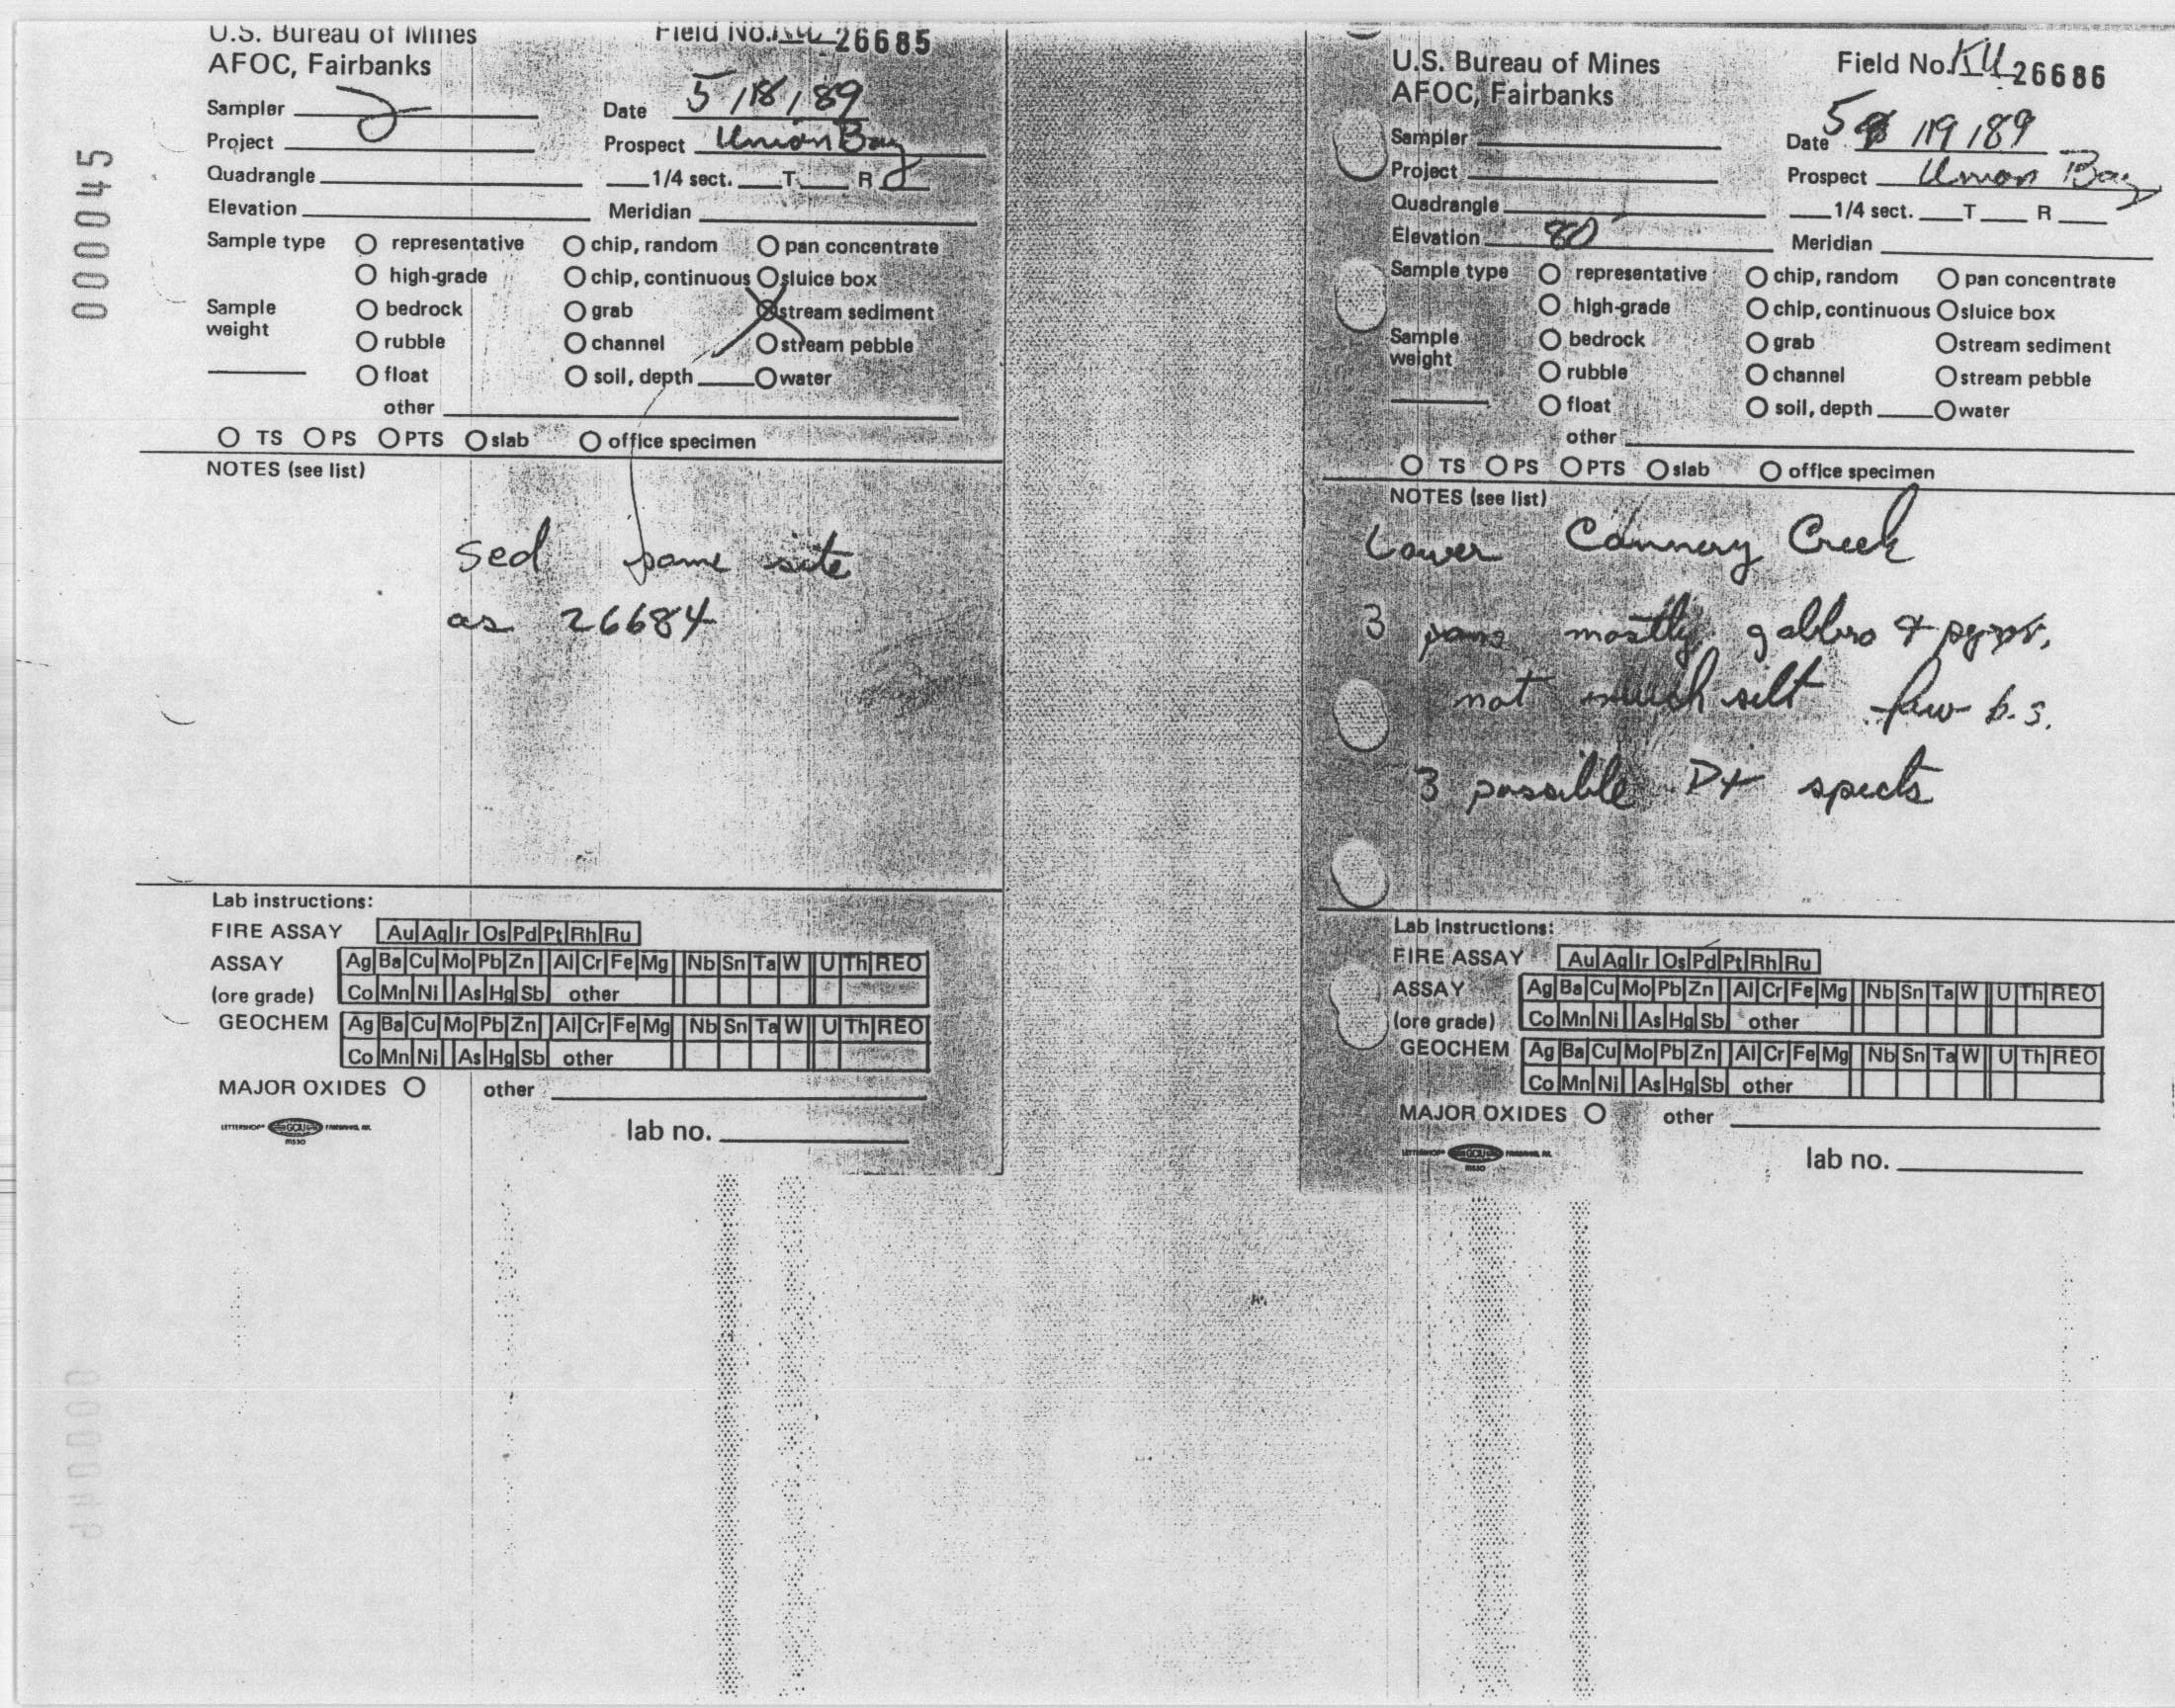 000045
U.S. Bureau of Mines Field No. KU 26685
AFOC, Fairbanks
Sampler Date 5/18/89
Project Prospect Union Bay
Quadrangle 1/4 sect. T R
Elevation Meridian
Sample type representative chip, random pan concentrate
high-grade chip, continuous sluice box
Sample weight bedrock grab stream sediment
rubble channel stream pebble
float soil, depth water
other
TS PS PTS slab office specimen
NOTES (see list)
Sed same site
as 26684
Lab instructions:
FIRE ASSAY Au Ag Ir Os Pd Pt Rh Ru
ASSAY Ag Ba Cu Mo Pb Zn Al Cr Fe Mg Nb Sn Ta W U Th REO
(ore grade) Co Mn Ni As Hg Sb other
GEOCHEM Ag Ba Cu Mo Pb Zn Al Cr Fe Mg Nb Sn Ta W U Th REO
Co Mn Ni As Hg Sb other
MAJOR OXIDES other
lab no.
U.S. Bureau of Mines Field No. KU 26686
AFOC, Fairbanks
Sampler Date 5/19/89
Project Prospect Union Bay
Quadrangle 1/4 sect. T R
Elevation 80' Meridian
Sample type representative chip, random pan concentrate
high-grade chip, continuous sluice box
Sample weight bedrock grab stream sediment
rubble channel stream pebble
float soil, depth water
other
TS PS PTS slab office specimen
NOTES (see list)
Lower Cannery Creek
3 pans mostly gabbro &
not much silt few b.s.
3 possible Pt specks
Lab instructions:
FIRE ASSAY Au Ag Ir Os Pd Pt Rh Ru
ASSAY Ag Ba Cu Mo Pb Zn Al Cr Fe Mg Nb Sn Ta W U Th REO
(ore grade) Co Mn Ni As Hg Sb other
GEOCHEM Ag Ba Cu Mo Pb Zn Al Cr Fe Mg Nb Sn Ta W U Th REO
Co Mn Ni As Hg Sb other
MAJOR OXIDES other
lab no.